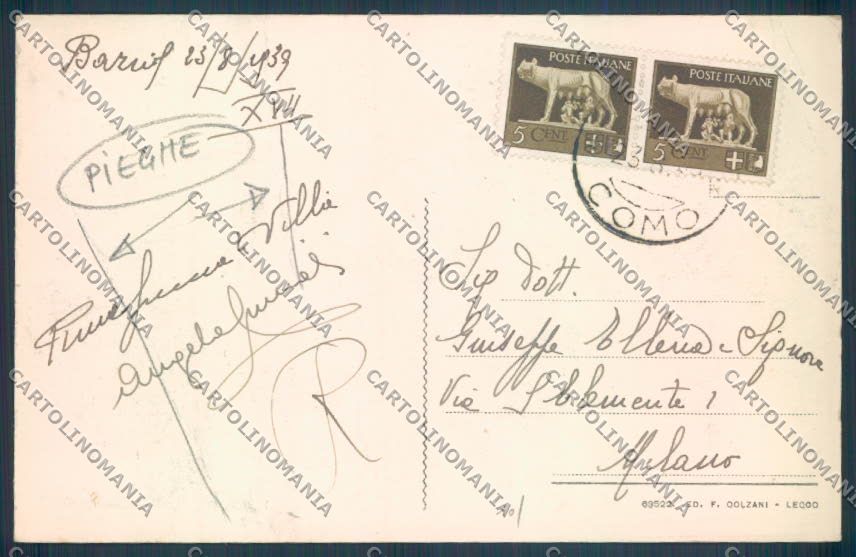 Barni 23/8/1939
XVII
PIEGHE
Villa
Angela
R
POSTE ITALIANE
5 CENT
POSTE ITALIANE
5 CENT
23
COMO
Sig Dott.
Giuseppe Ellena e Signora
Via S. Clemente 1
Milano
1
69522 ED. F. GOLZANI - LECCO
CARTOLINOMANIA